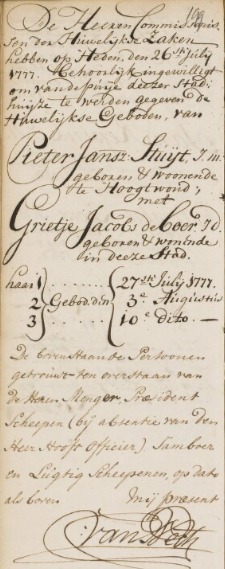 De Heeren Commissaris-
sen der Huwelijkse Zaken
hebben op Heden, den 26ste July
1777. behoorlijk ingewilligt
om van de puije deezer Stad-
huijze te werden gegeven de
Huwelijkse Geboden, van
Pieter Jansz: Stuijt, J.M.
geboren & woonende
te Hoogtwoud;
met
Grietje Jacobs de Boer J.d.
geboren & woonende
in deeze Stad.
haar 1) . . . . . . . { 27ste July 1777.
2 } Gebod. den { 3e Augustus
3) . . . . . . . { 10e dito. —
De bovenstaande Persoonen
getrouwt ten overstaan van
de Heeren Menger, Præsident
Scheepen (bij absentie van den
Heer Hooft Officier) Tamboer
en Lugtig Scheepenen, op dato
als boven Mij present